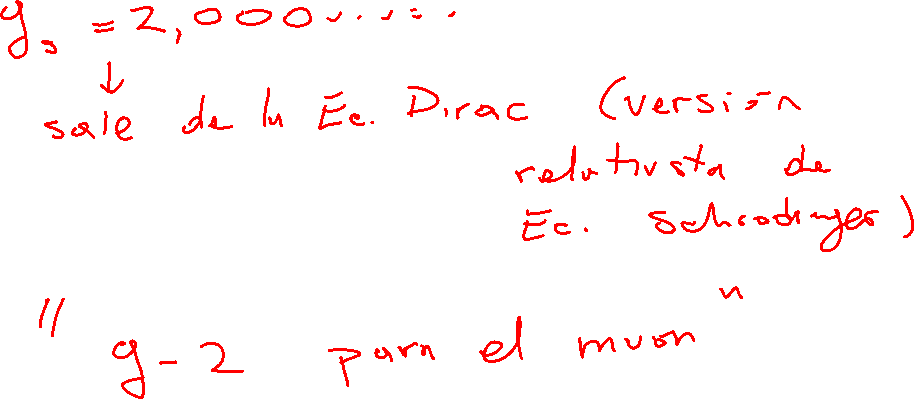 gs = 2,000.......
↓
sale de la Ec. Dirac (versión
relativista de
Ec. Schrodinger)
" g-2 para el muon "